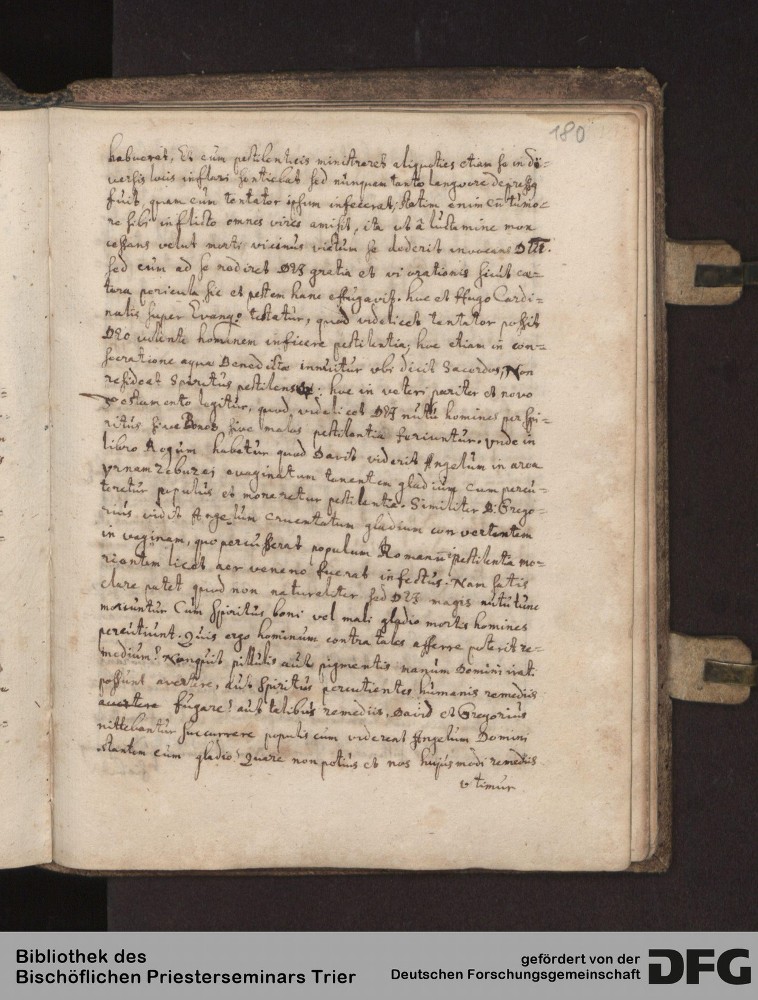 180
habuerat. Et cum pestilenticis ministraret aliquoties etiam se in di-
versis locis inflari sentiebat sed nunquam tanto langvore depressq
fuit, quam cum tentator ipsum infecerat; statim enim cū timo-
re sibi inflicto omnes vires amisit, ita ut â luctamine mox
cessans velut morti vicinus victum se dederit invocans
sed cum ad se rediret gratia et vi orationis sicut cæ-
tera pericula sic et pestem hanc effugavit. huc et Hugo Cardi-
nalis super Evang. testatur, quod videlicet tentator possit
DEO volente hominem inficere pestilentia; huc etiam in con-
secratione aquæ Benedictæ innuitur ubi dicit Sacerdos, Non
resideat Spiritus pestilens: huc in veteri pariter et novo
testamento legitur, quod videlicet nutu homines per spi-
ritus sive Bonos sive malos pestilentia feriuntur. vnde in
libro Regum habetur quod David viderit Angelum in area
Jebuzei evaginatum tenentem gladium cum percu-
teretur populus et moreretur pestilentia. Similiter B: Grego-
rius vidit Angelum cruentatum gladium convertentem
in vaginam, quo percusserat populum Romanū pestilentia mo-
rientem licet aer veneno fuerat infectus. Nam satis
clare patet quod non naturaliter sed magis nutu tunc
moriuntur Cum Spiritus boni vel mali gladio mortis homines
percutiunt. Quis ergo hominum contra tales afferre poterit re-
medium? Nunquit pillulis aut pigmentis manum Domini
possunt avertere, aut Spiritus percutientes humanis remediis
fugare? aut talibus remediis, David et Gregorius
nittebantur succurrere populis cum viderent Angelum Domini
stantem cum gladio? Quare non potius et nos hujusmodi remediis
utimur
Bibliothek des
Bischöflichen Priesterseminars Trier
gefördert von der
Deutschen Forschungsgemeinschaft
DFG